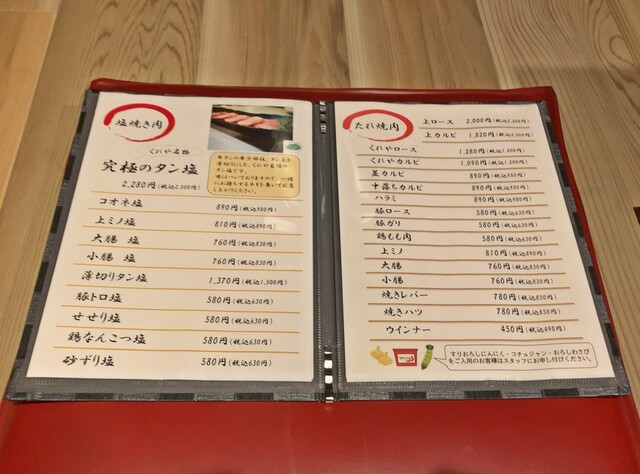 塩焼き肉
くれや名物
究極のタン塩
2,280円(税込2,500円)
コオネ塩 890円(税込980円)
上ミノ塩 810円(税込890円)
大腸 塩 760円(税込830円)
小腸 塩 760円(税込830円)
薄切りタン塩 1,370円(税込1,500円)
豚トロ塩 580円(税込630円)
せせり塩 580円(税込630円)
鶏なんこつ塩 580円(税込630円)
砂ずり塩 580円(税込630円)
たれ焼肉
上ロース 2,000円(税込2,200円)
上カルビ 1,820円(税込2,000円)
くれやロース 1,280円(税込1,400円)
くれやカルビ 1,090円(税込1,200円)
並カルビ 890円(税込980円)
中落ちカルビ 890円(税込980円)
ハラミ 890円(税込980円)
豚ロース 580円(税込630円)
豚ガリ 580円(税込630円)
鶏もも肉 580円(税込630円)
上ミノ 810円(税込890円)
大腸 760円(税込830円)
小腸 760円(税込830円)
焼きレバー 780円(税込850円)
焼きハツ 780円(税込850円)
ウインナー 450円(税込490円)
すりおろしにんにく・コチュジャン・おろしわさび
をご入用のお客様はスタッフにお申し付けください。